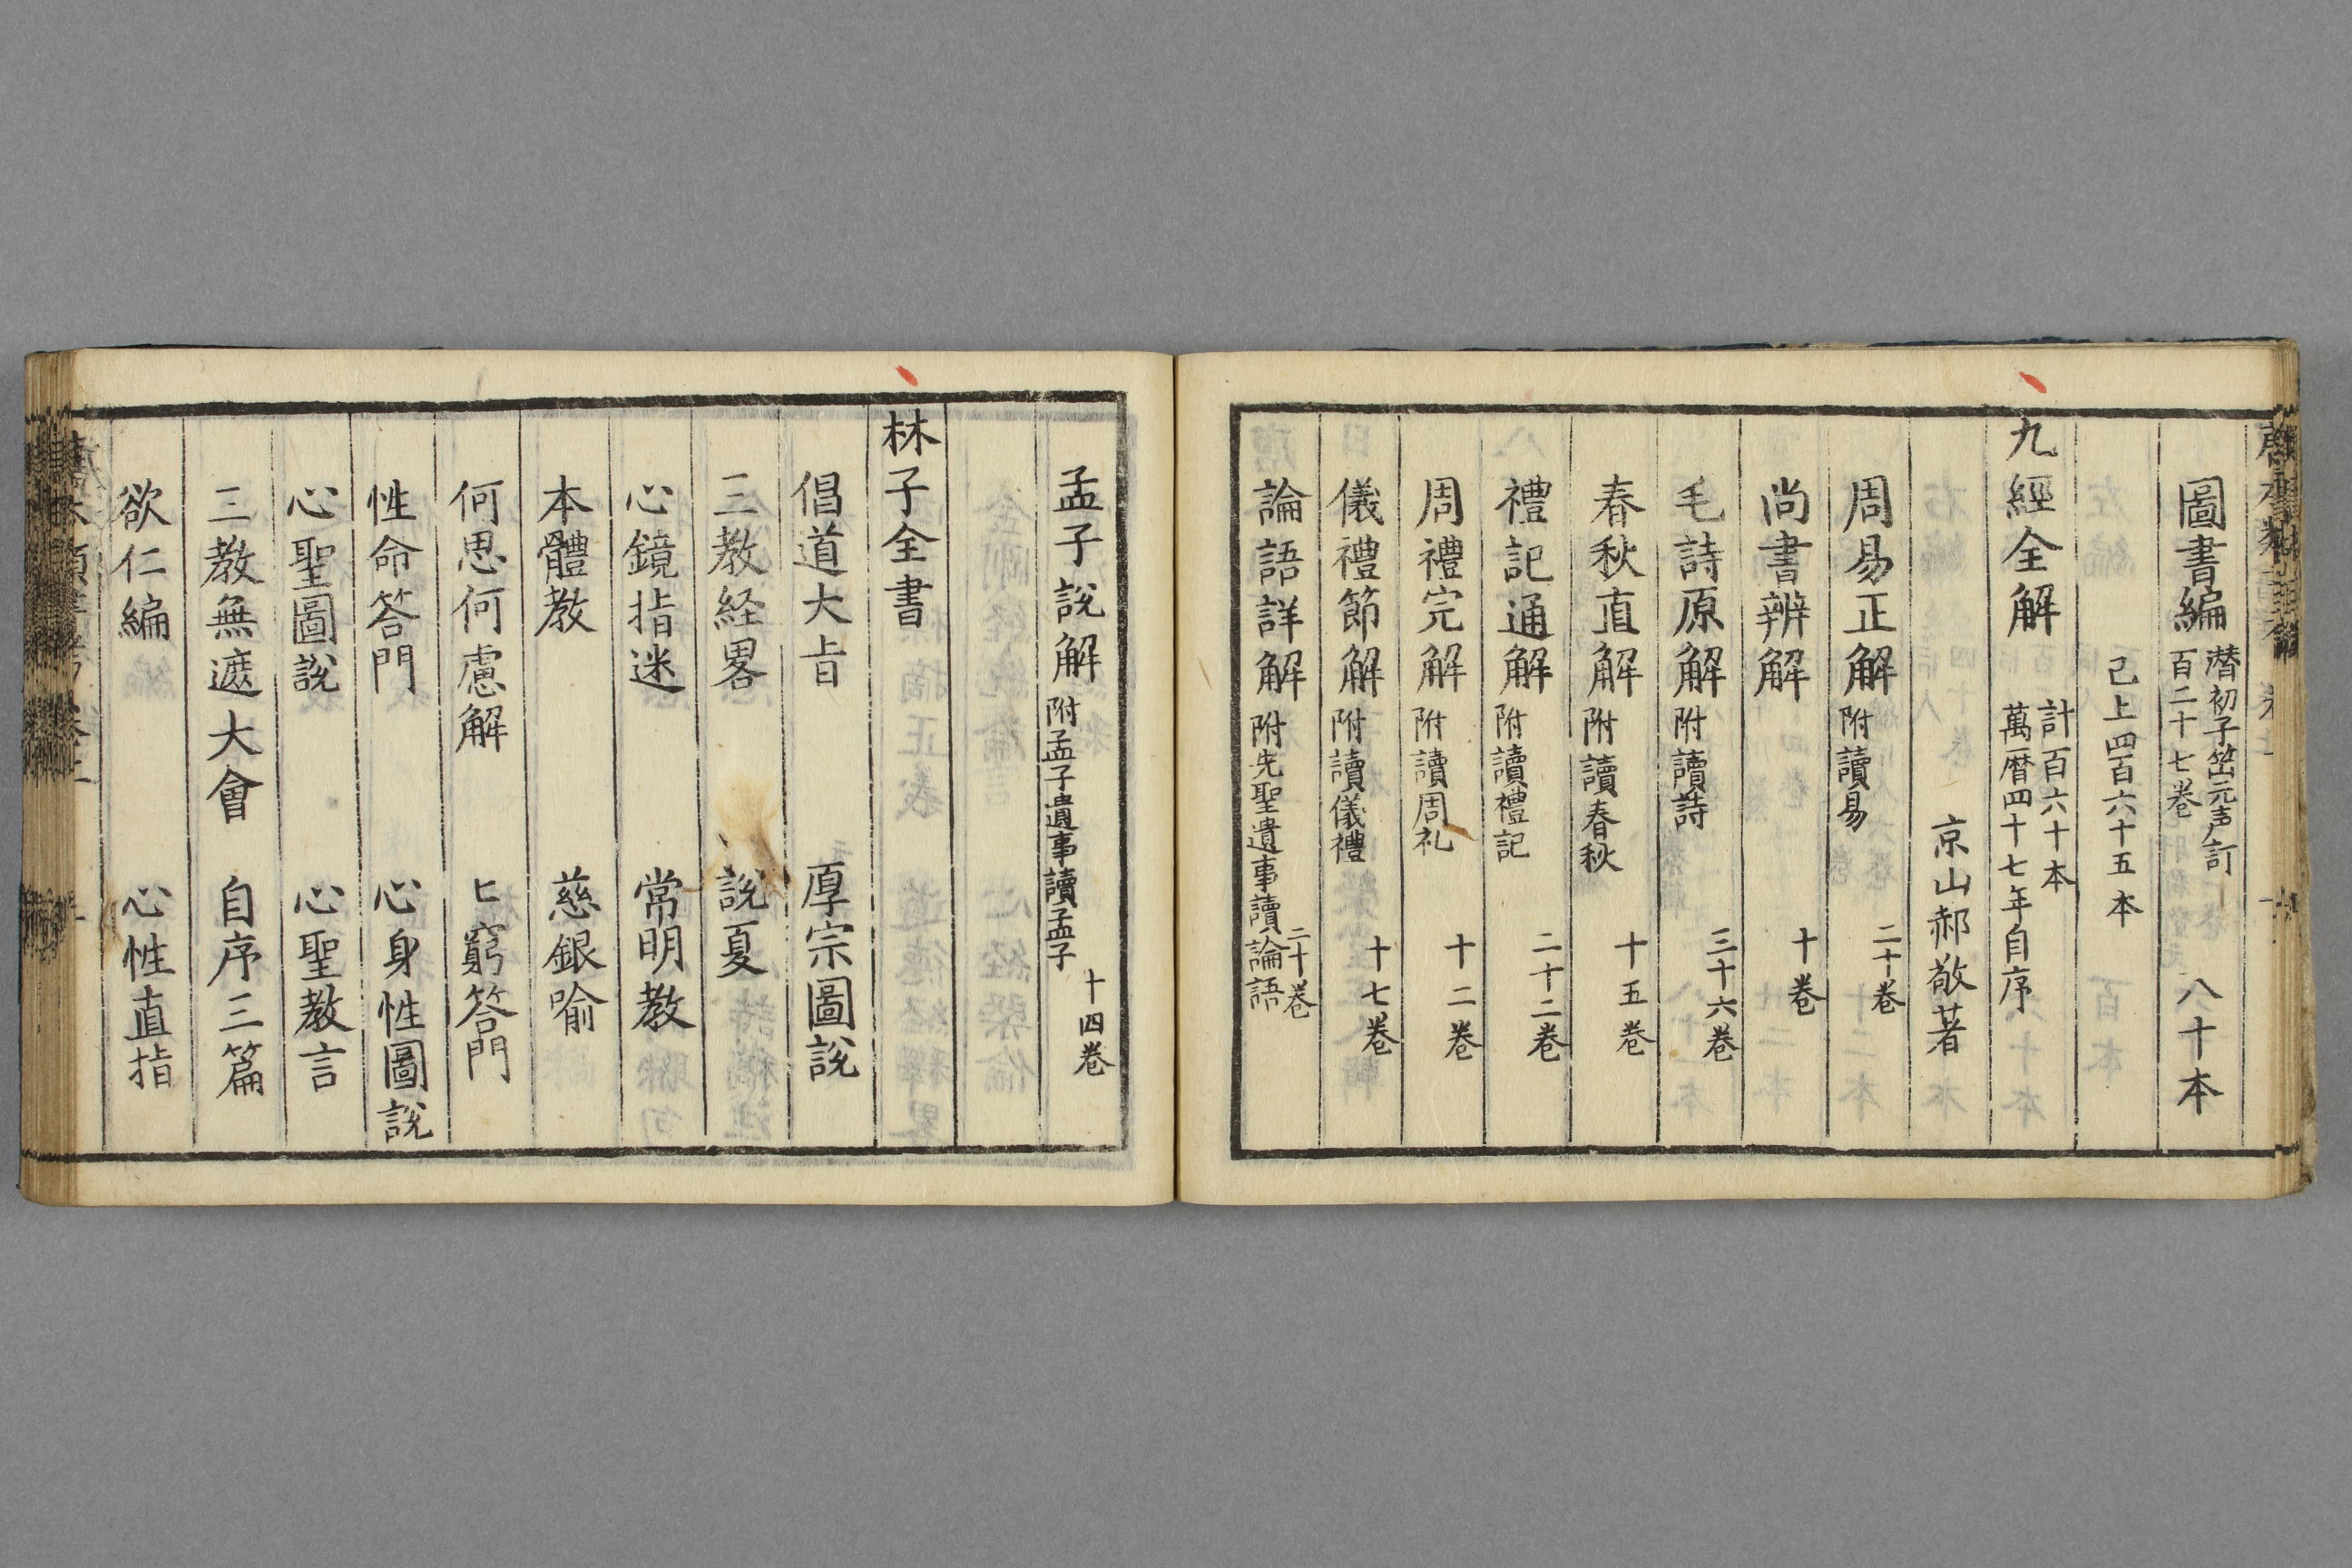 圖書編 潜初子岦元声訂 百二十七卷 八十本
已上四百六十五本
九經全解 計百六十本 萬暦四十七年自序
京山郝敬著
周易正解 附讀易 二十卷
尚書辨解 十卷
毛詩原解 附讀詩 三十六卷
春秋直解 附讀春秋 十五卷
禮記通解 附讀禮記 二十二卷
周禮完解 附讀周礼 十二卷
儀禮節解 附讀儀禮 十七卷
論語詳解 附先聖遺事讀論語 二十卷
孟子説解 附孟子遺事讀孟子 十四卷
林子全書
倡道大旨 厚宗圖説
三教経畧 説夏
心鏡指迷 常明教
本體教 慈銀喻
何思何慮解 窮答門
性命答門 心身性圖説
心聖圖説 心聖教言
三教無遮大會 自序三篇
欲仁編 心性直指